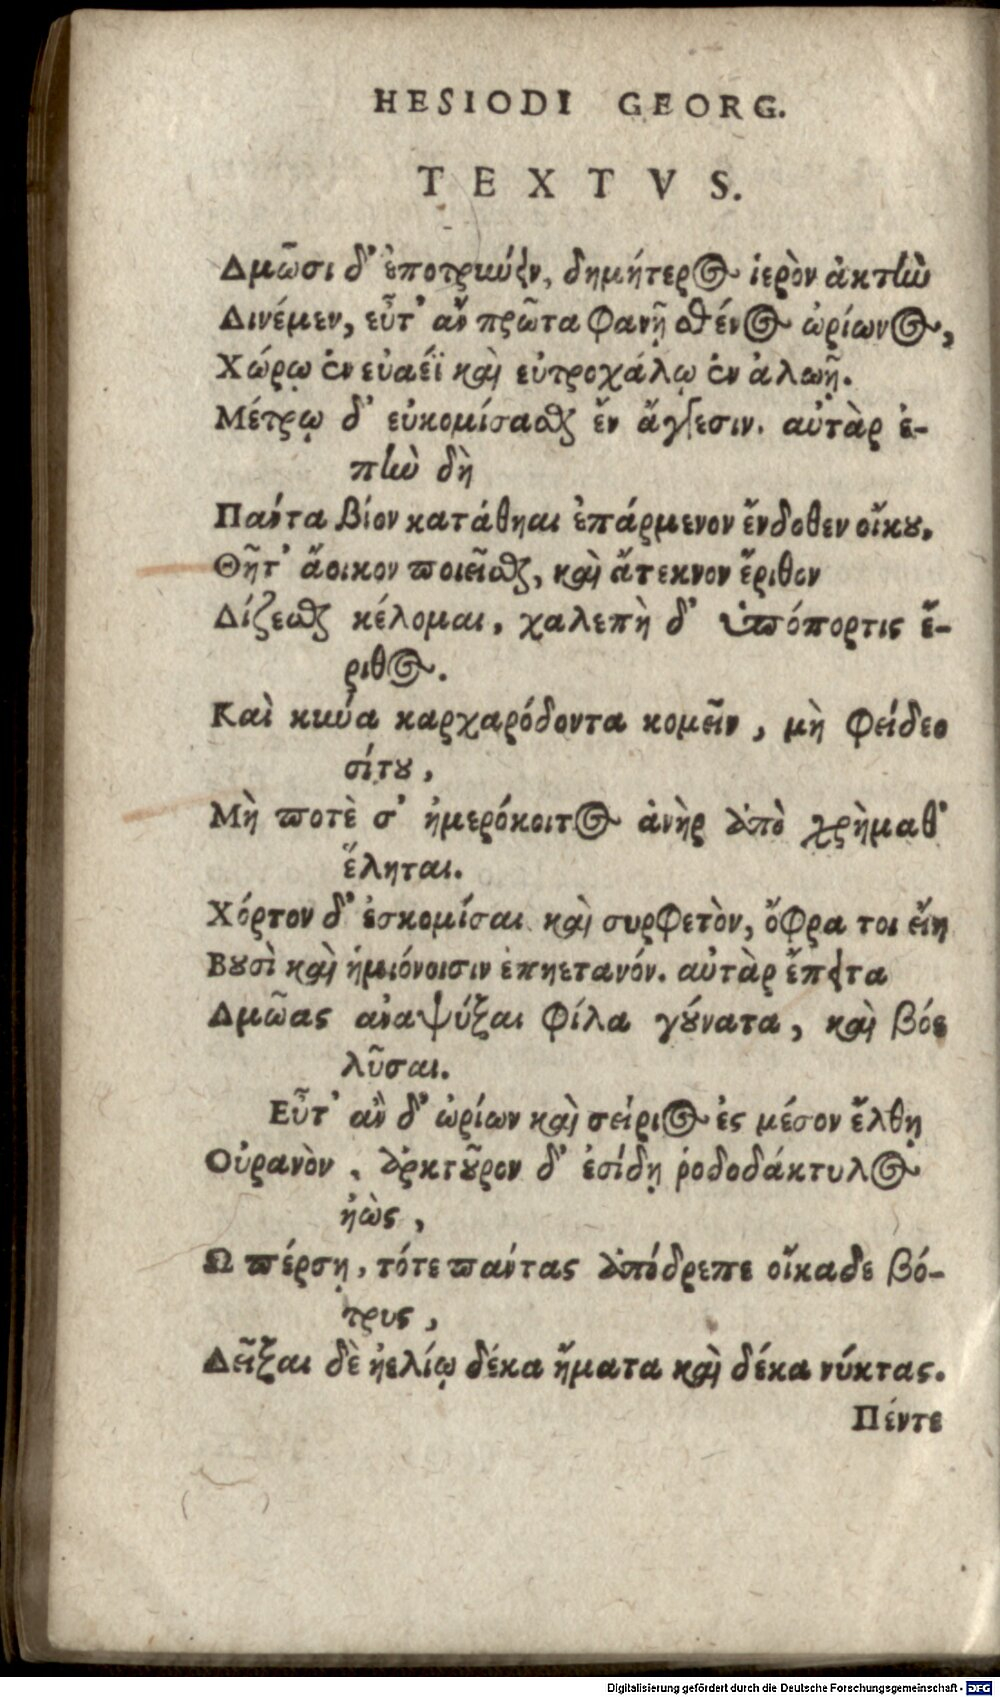 HESIODI GEORG.
TEXTVS.
Δμῶσι δ' ἐποτρωύειν, δημήτερος ἱερὸν ἀκτὴν
Δινέμεν, εὖτ' ἂν πρῶτα φανῇ σθένος ὠρίωνος,
Χώρῳ ἐν εὐαέϊ καὶ εὐτροχάλῳ ἐν ἀλωῇ.
Μέτρῳ δ' εὐκομίσασθαι ἐν ἄγγεσιν. αὐτὰρ ἐ-
πὴν δὴ
Πάντα βίον κατάθηαι ἐπάρμενον ἔνδοθεν οἴκου,
Θῆτ' ἄοικον ποιεῖσθαι, καὶ ἄτεκνον ἔριθον
Δίζεσθαι κέλομαι, χαλεπὴ δ' ὑπόπορτις ἔ-
ριθος.
Καὶ κύνα καρχαρόδοντα κομεῖν, μὴ φείδεο
σίτου,
Μὴ ποτὲ σ' ἡμερόκοιτος ἀνὴρ ἀπὸ χρήμαθ'
ἕληται.
Χόρτον δ' ἐσκομίσαι καὶ συρφετὸν, ὄφρα τοι εἴη
Βουσὶ καὶ ἡμιόνοισιν ἐπηετανόν. αὐτὰρ ἔπειτα
Δμῶας ἀναψύξαι φίλα γούνατα, καὶ βόε
λῦσαι.
Εὖτ' ἂν δ' ὠρίων καὶ σείριος ἐς μέσον ἔλθῃ
Οὐρανὸν, ἀρκτοῦρον δ' ἐσίδῃ ῥοδοδάκτυλος
ἠὼς,
Ω πέρση, τότε πάντας ἀπόδρεπε οἴκαδε βό-
τρυς,
Δεῖξαι δὲ ἠελίῳ δέκα ἤματα καὶ δέκα νύκτας.
Πέντε
Digitalisierung gefördert durch die Deutsche Forschungsgemeinschaft - DFG